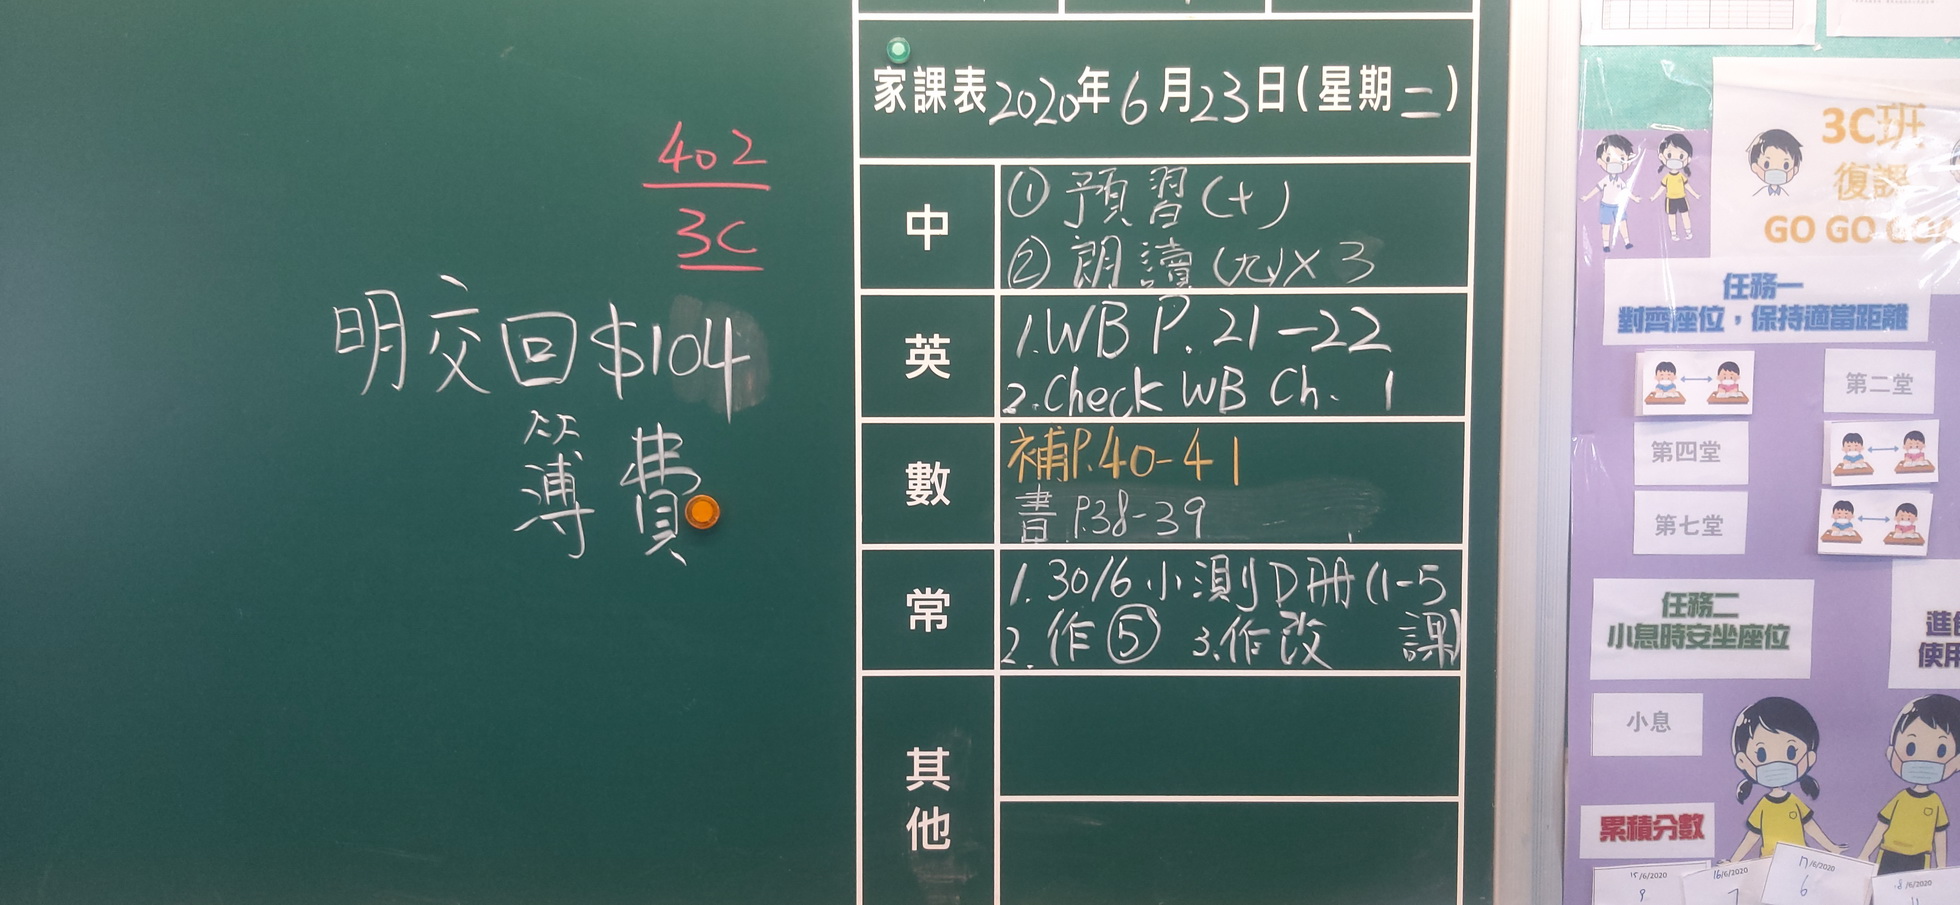 402
3C
明交回$104
簿費
家課表2020年6月23日(星期二)
中
①預習(十)
②朗讀(九)×3
英
1.WB P.21-22
2.Check WB Ch. 1
數
補P.40-41
書P.38-39
常
1.30/6小測D冊(1-5
2.作⑤ 3.作改 課)
其他
3C班
復課
GO GO GO
任務一
對齊座位,保持適當距離
第二堂
第四堂
第七堂
任務二
小息時安坐座位
小息
累積分數
15/6/2020
9
16/6/2020
7
17/6/2020
6